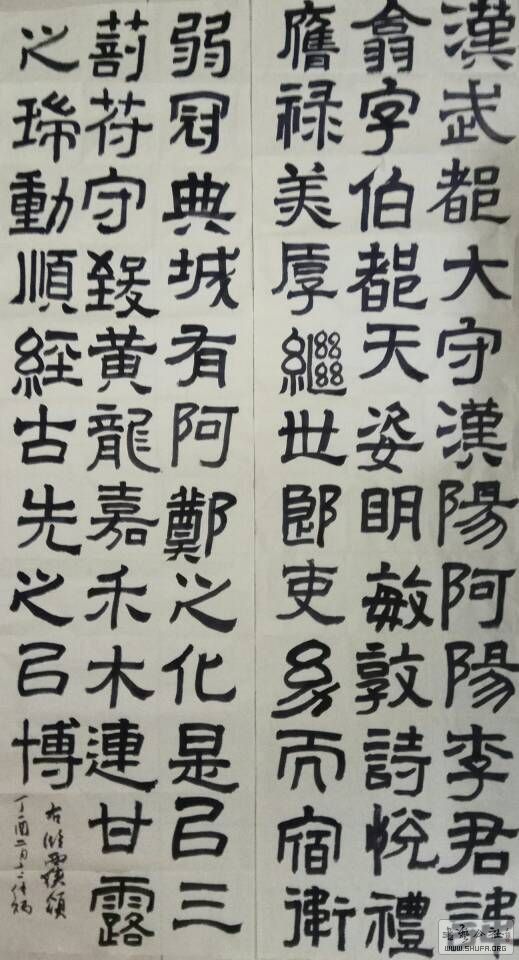 漢武都大守漢陽阿陽李君諱
翕字伯都天姿明敏敦詩悅禮
膺禄美厚繼世郎吏幼而宿衛
弱冠典城有阿鄭之化是㠯三
剖苻守致黄龍嘉禾木連甘露
之瑞動順經古先之㠯博
右临西狹頌
丁酉二月
书法公社
WWW.SHUFA.ORG